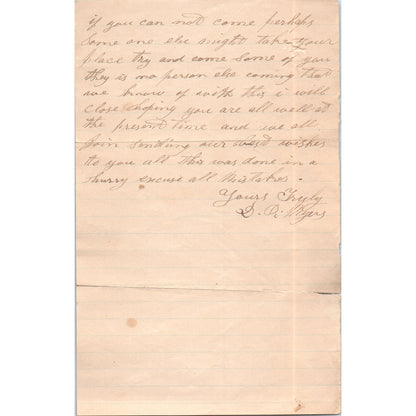 if you can not come perhaps
some one else might take your
place try and come some of you
they is no person else coming that
we know of with this i will
close hoping you are all well at
the present time and we all
join sending our best wishes
to you all this was done in a
hurry excuse all mistakes.
Yours Truly
D. P. Myers